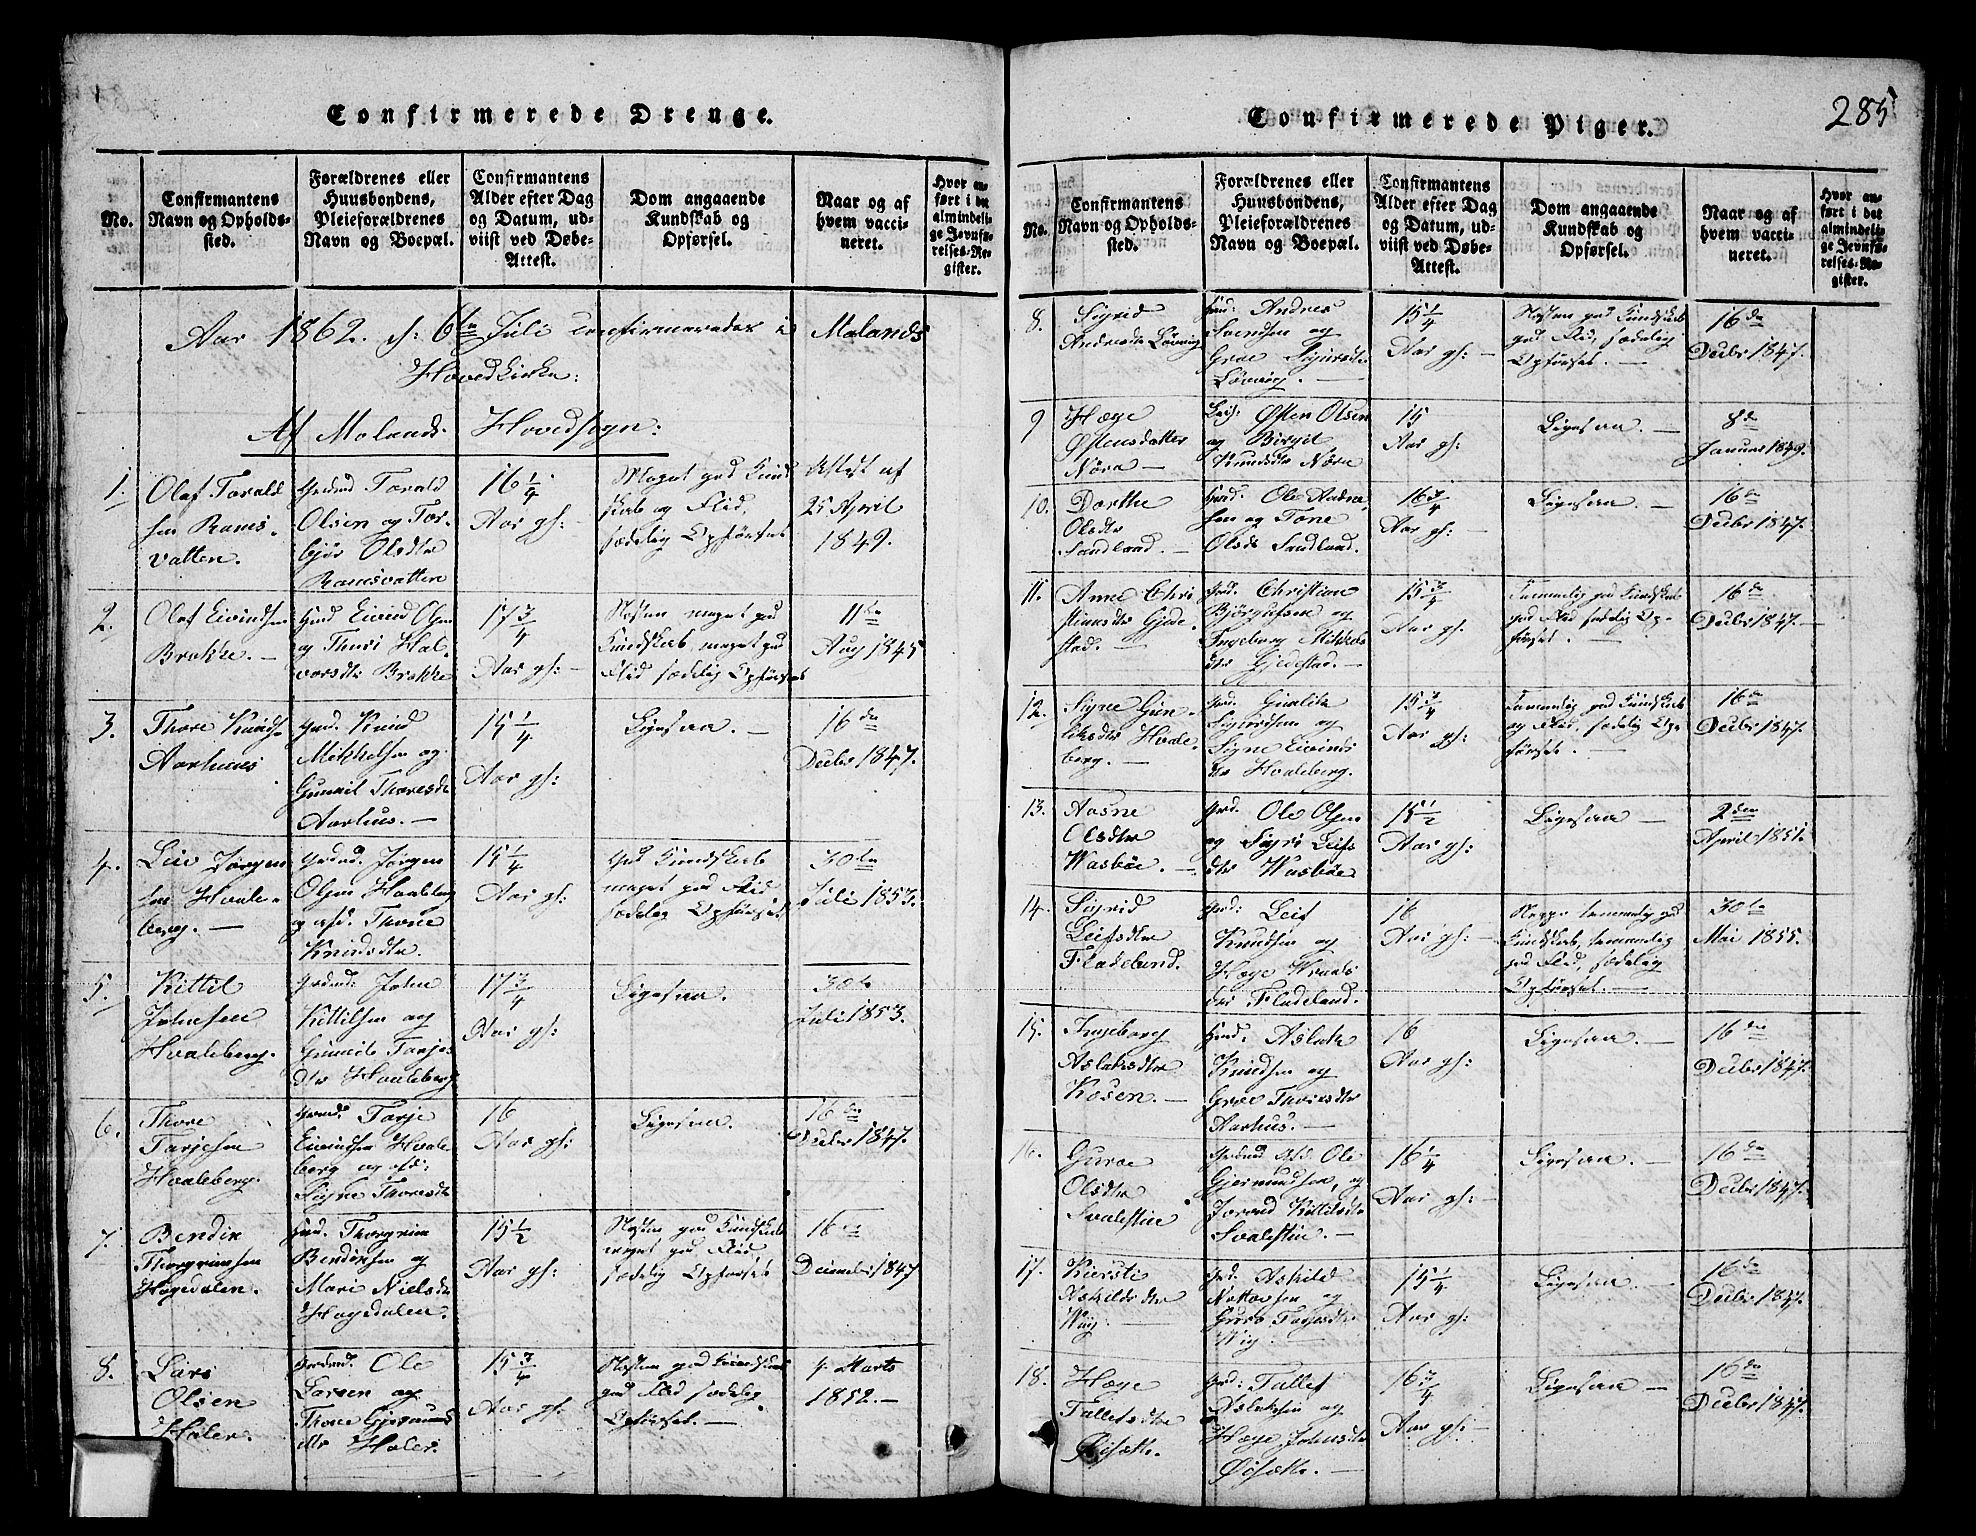 Confirmerede Drenge.
No.
Confirmantens
Navn og Opholds-
sted.
Forældrenes eller
Huusbondens,
Pleieforældrenes
Navn og Boepæl.
Confirmantens
Alder efter Dag
og Datum, ud-
viist ved Døbe-
Attest.
Dom angaaende
Kundskab og
Opførsel.
Naar og af
hvem vacci-
neret.
Hvor an-
ført i det
almindeli-
ge Jevnfø-
relses-Re-
gister.
Aar 1862. d: 6te Juli confirmeredes i Molands
Hovedkirke:
Af Molands Hovedsogn:
1.
Olaf Torald
sen Rams-
vatten.
Grdmd Torald
Olsen og Tor-
bjør Olsdtr
Ramsvatten
16 1/4
Aar gl: -
Meget god Kund
skab og Flid,
sædelig Opførsel
Attest af
25 April
1849.
2.
Olaf Eivindsen
Brokke. -
Hmd Eivind Olsen
og Thuri Hal-
vorsdtr Brokke
17 3/4
Aar gl: -
Næsten meget god
Kundskab, meget god
Flid sædelig Opførsel
11te
Aug 1845
3.
Thore Knuds-
Aarhuus
Grd. Knud
Mikkelsen og
Gunnil Thoresdtr
Aarhus. -
15 1/4
Aar gl:
Ligesaa. -
16de
Decbr 1847.
4.
Jørgen
sen Hvale-
berg. -
Grdmd. Jørgen
Olsen Hvaleberg
og afd. Thone
Knudsdtr.
15 1/4
Aar gl:
God Kundskab
meget god Flid
sædelig Opførsel
30te
Juli 1853.
5.
Kittil
Johnsen
Hvaleberg.
Grdmd: John
Kittilsen og
Gunnild Tarjes
dtr Hvaleberg
17 3/4
Aar gl:
Ligesaa.
30te
Juli 1853.
6.
Thore
Tarjesen
Hvaleberg.
Grdmd. Tarje
Eivindsen Hvale
berg og afd:
Signe Thoresdtr
16
Aar gl:
Ligesaa.
16de
Decbr 1847.
7.
Bendik
Thorgrimsen
Høgedalen.
Hmd. Thorgrim
Bendiksen og
Mari Nielsdtr
Høgedalen.
15 1/2
Aar gl:
Næsten god Kundskab
meget god Flid
sædelig Opførsel
16de
Decembr 1847
8.
Lars
Olsen
Holer.
Grdmd. Ole
Larsen og
Thone Gjermunds
dtr Holer.
15 3/4
Aar gl:
Næsten god Kundskab
god Flid sædelig
Opførsel. -
4 Marts
1852. -
Confirmerede Piger.
285
No.
Confirmantens
Navn og Opholds-
sted.
Forældrenes eller
Huusbondens,
Pleieforældrenes
Navn og Boepæl.
Confirmantens
Alder efter Dag
og Datum, ud-
viist ved Døbe-
Attest.
Dom angaaende
Kundskab og
Opførsel.
Naar og af
hvem vacci-
neret.
Hvor an-
ført i det
almindeli-
ge Jevnfø-
relses-Re-
gister.
8.
Sigrid
Andresdtr Løvvig
Hmd. Andres
Svendsen og
Groe Sigursdtr
Løvvig. -
15 1/4
Aar gl: -
Næsten god Kundskab
god Flid, sædelig
Opførsel. -
16de
Decbr 1847.
9
Hæge
Østensdatter
Nøra -
Østen Olsen
og Birgit
Knudsdtr Nøra
15
Aar gl:
Ligesaa. -
8de
Januar 1849.
10.
Dorthe
Olsdtr
Sandland. -
Hmd. Ole Andre
sen og Tone
Olsdtr Sandland.
16 3/4
Aar gl:
Ligesaa. -
16de
Decbr 1847.
11.
Anne Chri
stiansdtr Gjede-
stad. -
Grd. Christian
Bjørgufsen og
Ingeborg Mikkels
dtr Gjedestad. -
15 3/4
Aar gl.
Temmelig god Kundskab
god Flid sædelig Op-
førsel. -
16de
Decbr 1847.
12.
Signe Gun-
leksdtr Hvale-
berg. -
Grd. Gunleik
Sigurdsen og
Signe Eivinds
dtr Hvaleberg.
15 3/4
Aar gl:
Temmelig god Kundskab
og Flid, sædelig Op-
førsel. -
16de
Decbr 1847.
13.
Aasne
Olsdtr
Wasbøe. -
Grd. Ole Olsen
og Sigri Leifs
dtr Wasbøe
15 1/2
Aar gl:
Ligesaa. -
2den
April 1851.
14.
Sigrid
Leifsdtr
Fladelund.
Grd: Leif
Knudsen og
Hæge Wraals
dtr Fladeland.
16
Aar gl: -
Neppe temmelig god
Kundskab, temmelig
god Flid, sædelig
Opførsel. -
30te
Mai 1855.
15.
Ingeborg
Aslaksdtr
Rosen. -
Hmd. Aslak
Knudsen og
Groe Thorsdtr
Aarhus. -
16
Aar gl:
Ligesaa. -
16de
Decbr 1847.
16.
Guroe
Olsdtr
Svalestue
Grdmd afd Ole
Gjermundsen, og
Jorand Kittilsdtr
Svalestue. -
16 1/4
Aar gl: -
Ligesaa. -
16de
Decbr 1847.
17.
Kiersti
Askildsdtr
Wiig -
Grd. Askild
Nottovsen og
Guro Tarjesdtr
Wiig. -
15 1/4
Aar gl:
Ligesaa -
16de
Decbr 1847.
18.
Hæge
Tallefsdtr
Øisætt.
Grd: Tallef
Aslaksen og
Hæge Johnsdtr
Øisætt. -
16 3/4
Aar gl:
Ligesaa -
16de
Decbr 1847.